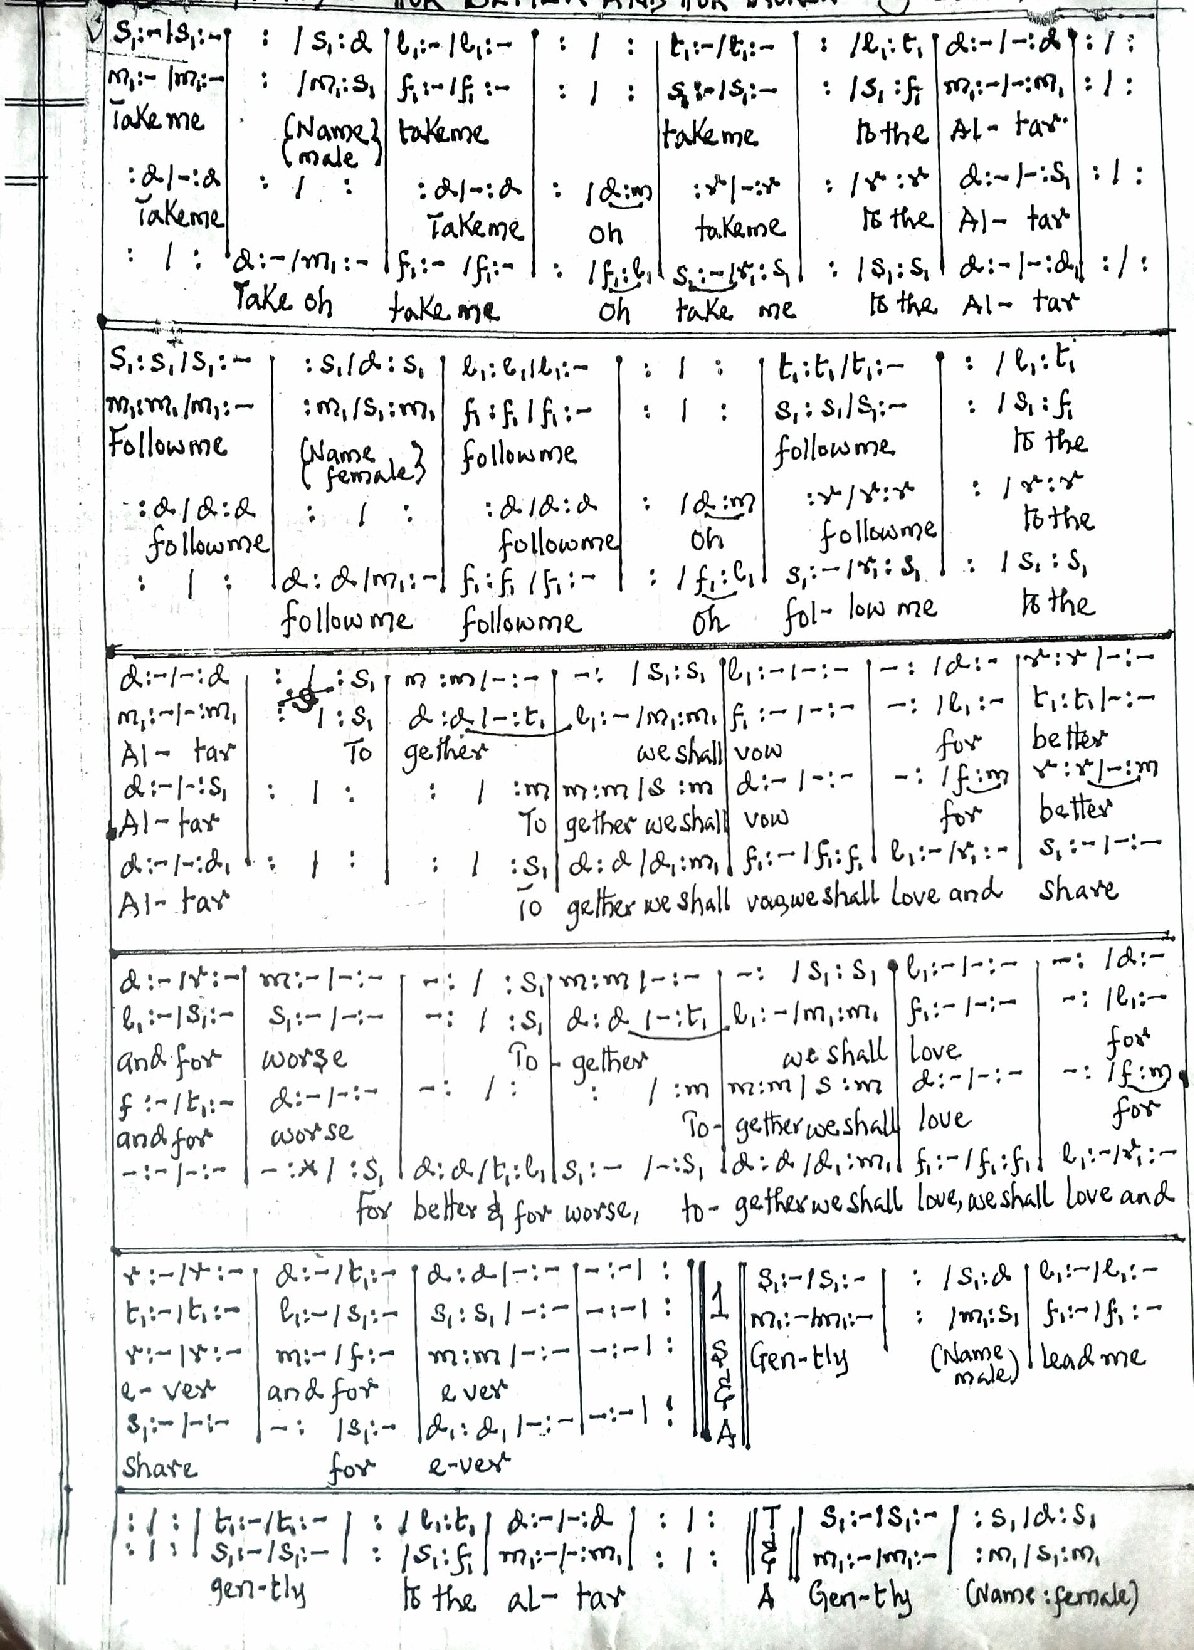 FOR BETTER AND FOR WORSE
S₁:-/S₁:- | : / S₁:d | l₁:-/l₁:- | : / : | t₁:-/t₁:- | : /l₁:t₁ | d:-/-:d | : / :
m₁:- /m₁:- | : /m₁:S₁ | f₁:-/f₁:- | : / : | S₁:-/S₁:- | : /S₁:f₁ | m₁:-/-:m₁ | : / :
Take me (Name male) take me take me to the Al- tar
:d/-:d | : / : | :d/-:d | : /d:m | :r/-:r | : /r:r | d:-/-:S₁ | : / :
Take me Take me oh take me to the Al- tar
: / : | d:-/m₁:- | f₁:- /f₁:- | : /f₁:l₁ | S₁:-/r₁:S₁ | : /S₁:S₁ | d:-/-:d₁ | : / :
Take oh take me oh take me to the Al- tar
S₁:S₁/S₁:- | :S₁/d:S₁ | l₁:l₁/l₁:- | : / : | t₁:t₁/t₁:- | : /l₁:t₁
m₁:m₁/m₁:- | :m₁/S₁:m₁ | f₁:f₁/f₁:- | : / : | S₁:S₁/S₁:- | : /S₁:f₁
Follow me (Name female) follow me follow me to the
:d/d:d | : / : | :d/d:d | : /d:m | :r/r:r | : /r:r
follow me follow me oh follow me to the
: / : | d:d/m₁:- | f₁:f₁/f₁:- | : /f₁:l₁ | S₁:-/r₁:S₁ | : /S₁:S₁
follow me follow me oh fol- low me to the
d:-/-:d | : / :S₁ | m:m/-:- | -: /S₁:S₁ | l₁:-/-:- | -: /d:- | r:r/-:-
m₁:-/-:m₁ | : / :S₁ | d:d/-:t₁ | l₁:-/m₁:m₁ | f₁:-/-:- | -: /l₁:- | t₁:t₁/-:-
Al- tar To gether we shall vow for better
d:-/-:S₁ | : / : | : / :m | m:m/S:m | d:-/-:- | -: /f:m | r:r/-:m
Al- tar To gether we shall vow for better
d:-/-:d₁ | : / : | : / :S₁ | d:d/d₁:m₁ | f₁:-/f₁:f₁ | l₁:-/r₁:- | S₁:-/-:-
Al- tar To gether we shall we shall Love and share
d:-/r:- | m:-/-:- | -: / :S₁ | m:m/-:- | -: /S₁:S₁ | l₁:-/-:- | -: /d:-
l₁:-/S₁:- | S₁:-/-:- | -: / :S₁ | d:d/-:t₁ | l₁:-/m₁:m₁ | f₁:-/-:- | -: /l₁:-
and for worse To - gether we shall love for
f:-/t₁:- | d:-/-:- | -: / : | : / :m | m:m/S:m | d:-/-:- | -: /f:m
and for worse To- gether we shall love for
-:-/-:- | -:x/ :S₁ | d:d/t₁:l₁ | S₁:- /-:S₁ | d:d/d₁:m₁ | f₁:-/f₁:f₁ | l₁:-/r₁:-
For better & for worse, to- gether we shall love, we shall love and
r:-/r:- | d:-/t₁:- | d:d/-:- | -:-/ : || 1 || S₁:-/S₁:- | : /S₁:d | l₁:-/l₁:-
t₁:-/t₁:- | l₁:-/S₁:- | S₁:S₁/-:- | -:-/ : || S || m₁:-/m₁:- | : /m₁:S₁ | f₁:-/f₁:-
r:-/r:- | m:-/f:- | m:m/-:- | -:-/ : || & || Gen-tly (Name male) lead me
e- ver and for e ver
S₁:-/-:- | -: /S₁:- | d₁:d₁/-:- | -:-/ : || A ||
share for e-ver
: / : | t₁:-/t₁:- | : /l₁:t₁ | d:-/-:d | : / : || T || S₁:-/S₁:- | :S₁/d:S₁
: / : | S₁:-/S₁:- | : /S₁:f₁ | m₁:-/-:m₁ | : / : || & || m₁:-/m₁:- | :m₁/S₁:m₁
gen-tly to the al- tar A Gen-tly (Name:female)